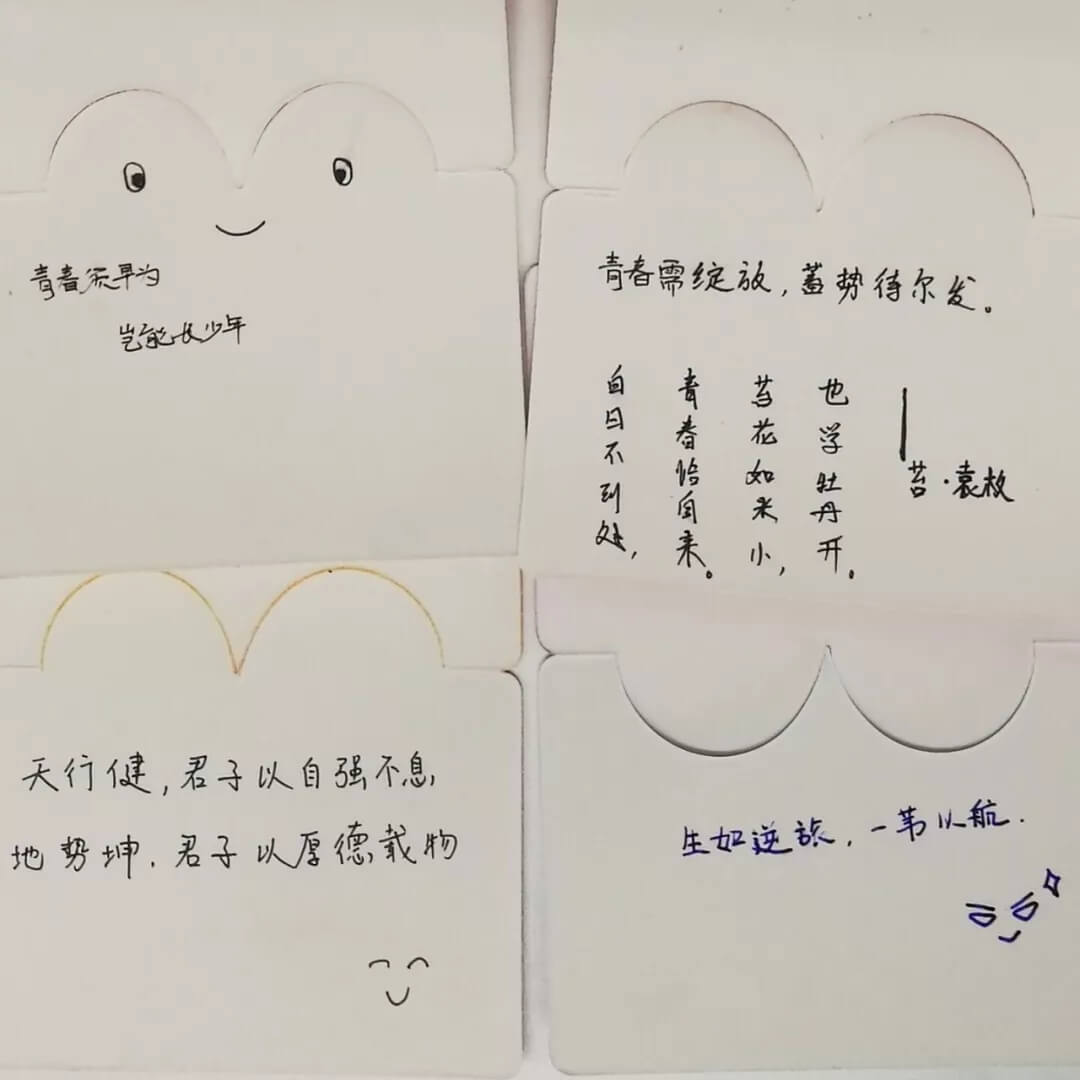 青春须早为
岂能长少年
青春需绽放，蓄势待尔发。
白日不到处，
青春恰自来。
苔花如米小，
也学牡丹开。
——苔·袁枚
天行健，君子以自强不息
地势坤，君子以厚德载物
生如逆旅，一苇以航.